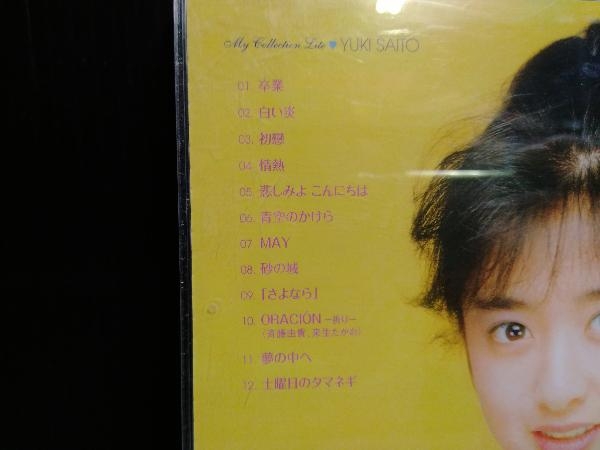 My Collection Lite ♥ YUKI SAITO
01. 卒業
02. 白い炎
03. 初戀
04. 情熱
05. 悲しみよ こんにちは
06. 青空のかけら
07. MAY
08. 砂の城
09. 「さよなら」
10. ORACIÓN －祈り－
（斉藤由貴、来生たかお）
11. 夢の中へ
12. 土曜日のタマネギ